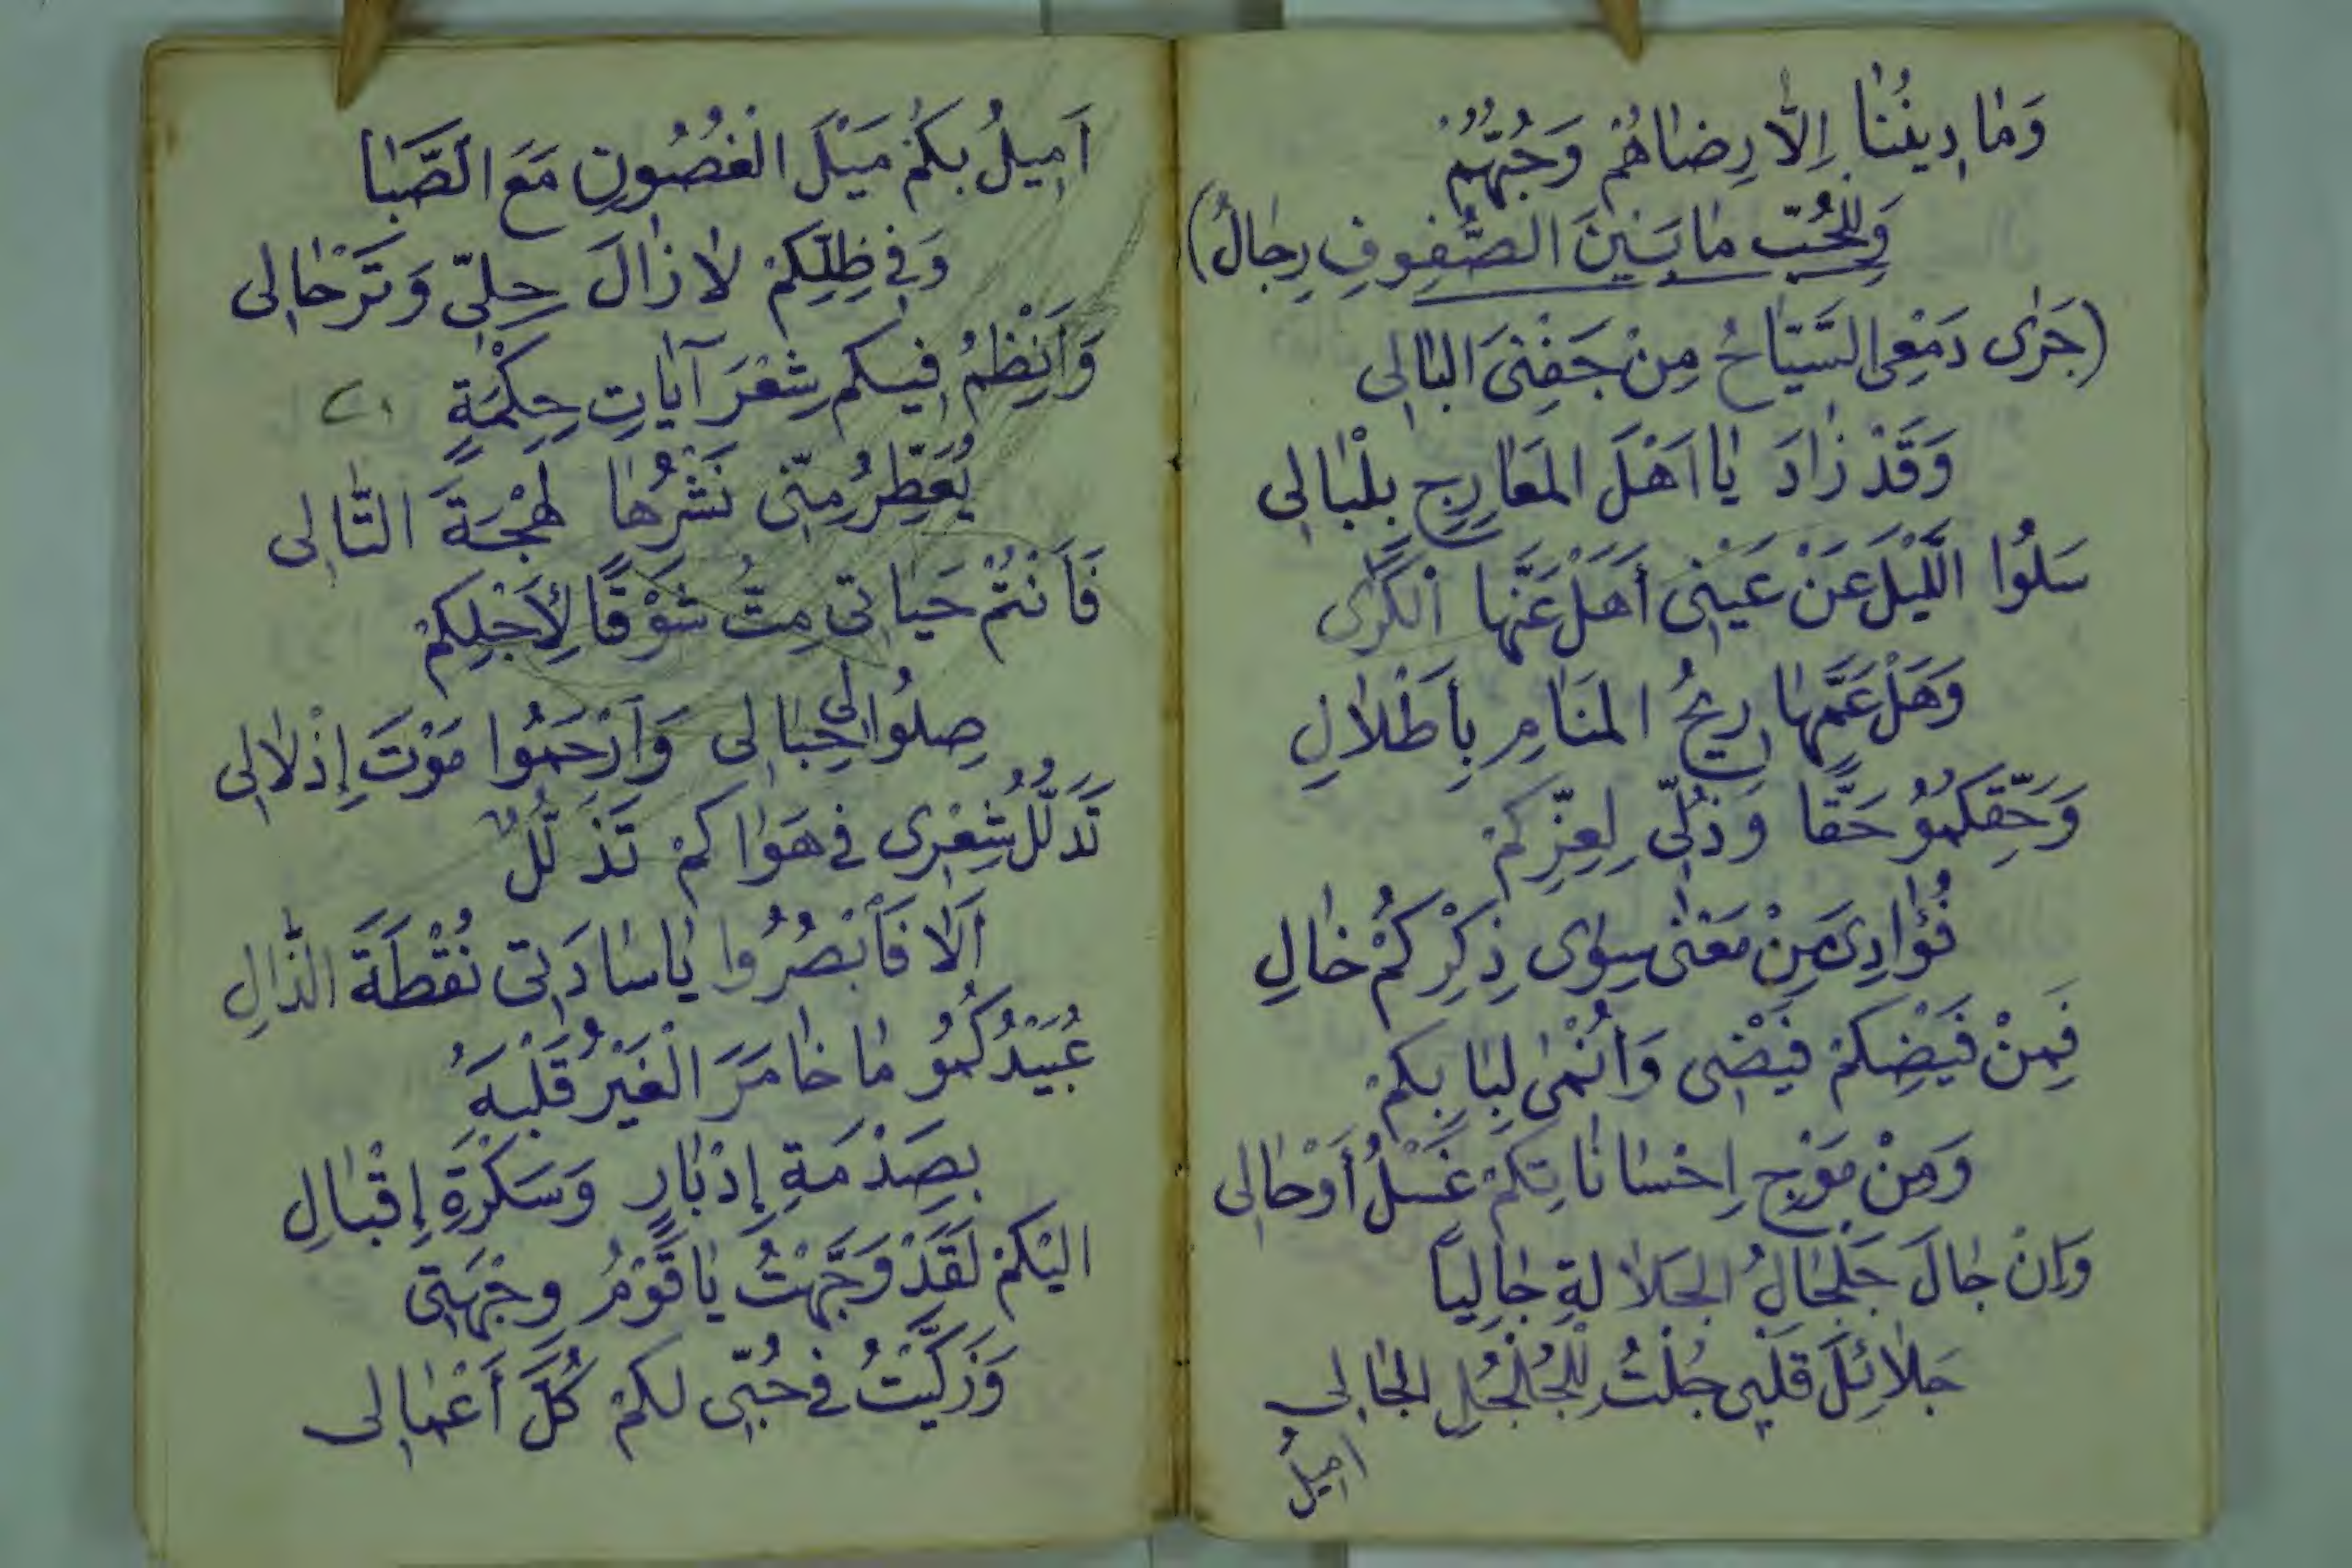 وَمَا دِينُنَا إِلَّا رِضَاهُمْ وَحُبُّهُمْ
وَلِلْحُبِّ مَا بَيْنَ الصُّفُوفِ رِجَالُ)
(جَرَى دَمْعِى السَّيَّاحُ مِنْ جَفْنِىَ البَالِى
وَقَدْ زَادَ يَا اَهْلَ المَعَارِجِ بِلْبَالِى
سَلُوا اللَّيْلَ عَنْ عَيْنِى أَهَلْ عَنَّهَا الْكَرَى
وَهَلْ عَمَّهَا رِيحُ المَنَامِ بِأَطْلَالِ
وَحَقِّكُمُو حَقًّا وَذُلِّى لِعِزِّكُمْ
فُؤَادِىَ مِنْ مَعْنَى سِوَى ذِكْرِكُمْ خَالِ
فَمِنْ فَيْضِكُمْ فَيْضِى وَأُنْمَى لِبَابِكُمْ
وَمِنْ مَوْجِ اِحْسَانَاتِكُمْ غَسْلُ أَوْحَالِى
وَاِنْ جَالَ جَلْجَالُ الجَلَالَةِ جَالِيًا
جَلَائِلَ قَلْبِى جُلْتُ لِلْجُلْجُلِ الجَالِى
اميلُ
اَمِيلُ بِكُمْ مَيْلَ الْغُصُونِ مَعَ الصَّبَا
وَفِى ظِلِّكُمْ لَا زَالَ حِلِّى وَتَرْحَالِى
وَاَنْظِمُ فِيكم شِعْرَ آيَاتِ حِكْمَةٍ
يُعَطِّرُ مِنِّى نَشْرُهَا لَهْجَةَ التَّالِى
فَأَنْتُمْ حَيَاتِى مِتُّ شَوْقًا لِأَجْلِكُمْ
صِلُوا لِى حِبَالِى وَارْحَمُوا مَوْتَ إِذْلَالِى
تَدَلَّلُ شِعْرِى فِى هَوَاكُمْ تَذَلُّلُ
اَلَا فَأَبْصُرُوا يَا سَادَتِى نُقْطَةَ الذَّالِ
عُبَيْدُكُمُو مَا خَامَرَ الْغَيْرُ قَلْبَهُ
بِصَدْمَةِ إِدْبَارٍ وَسَكْرَةِ إِقْبَالِ
اليْكُمْ لَقَدْ وَجَّهْتُ يَا قَوْمُ وِجْهَتِى
وَزَكَّيْتُ فِى حُبِّى لكمْ كُلَّ أَعْمَالِى